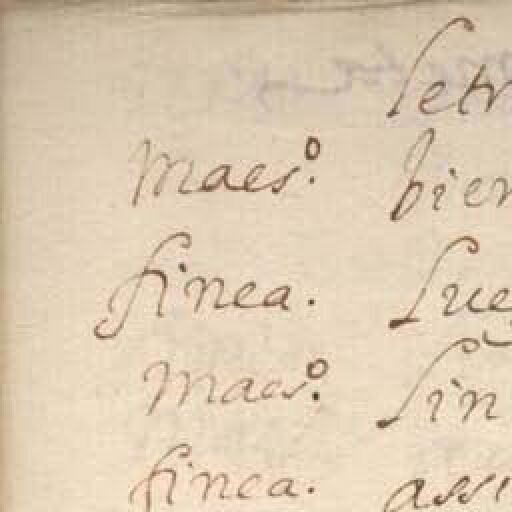 letr
maesº. bien
finea. lueg
maesº. sin
finea. assi